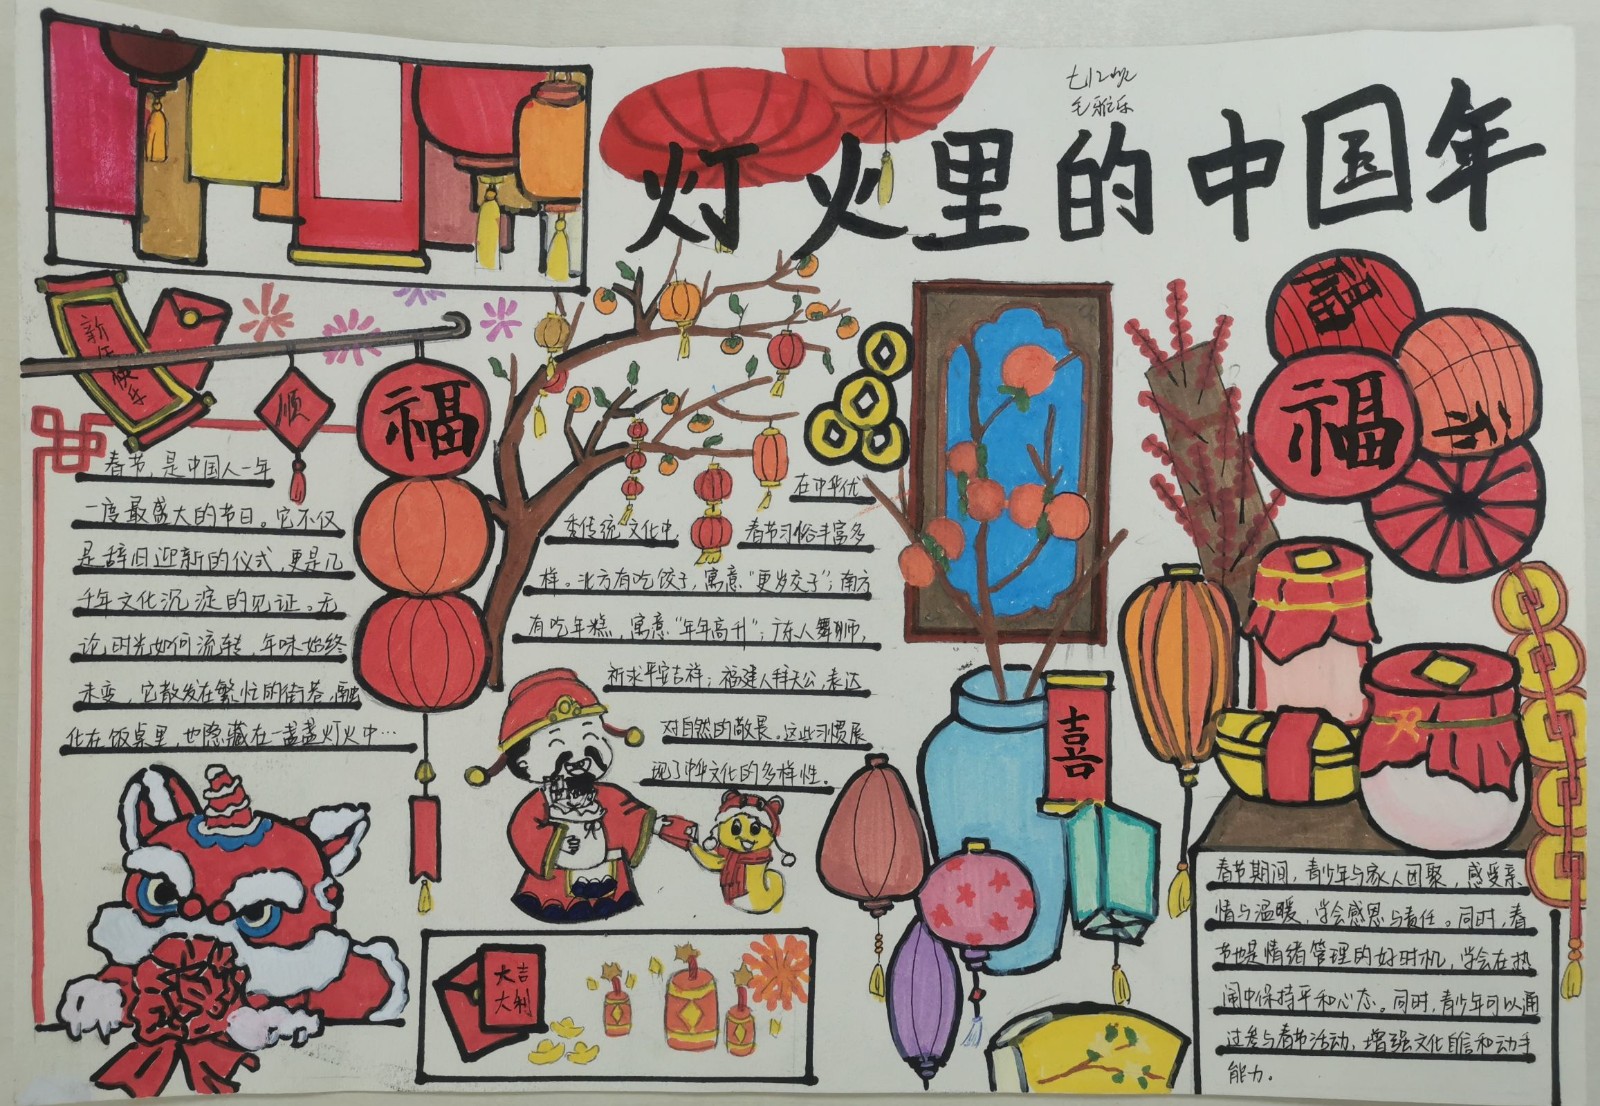 灯火里的中国年
毛雅乐
新年快乐
顺
福
春节,是中国人一年
一度最盛大的节日。它不仅
是辞旧迎新的仪式,更是几
千年文化沉淀的见证。无
论时光如何流转,年味始终
未变,它散发在繁忙的街巷,融
化在饭桌里,也隐藏在一盏盏灯火中…
在中华优
秀传统文化中,春节习俗丰富多
样。北方有吃饺子,寓意“更岁交子”;南方
有吃年糕,寓意“年年高升”;广东人舞狮,
祈求平安吉祥;福建人拜天公,表达
对自然的敬畏。这些习惯展
现了中华文化的多样性。
大吉
大利
喜
福
春节期间,青少年与家人团聚,感受亲
情与温暖,学会感恩与责任。同时,春
节也是情绪管理的好时机,学会在热
闹中保持平和心态。同时,青少年可以通
过参与春节活动,增强文化自信和动手
能力。